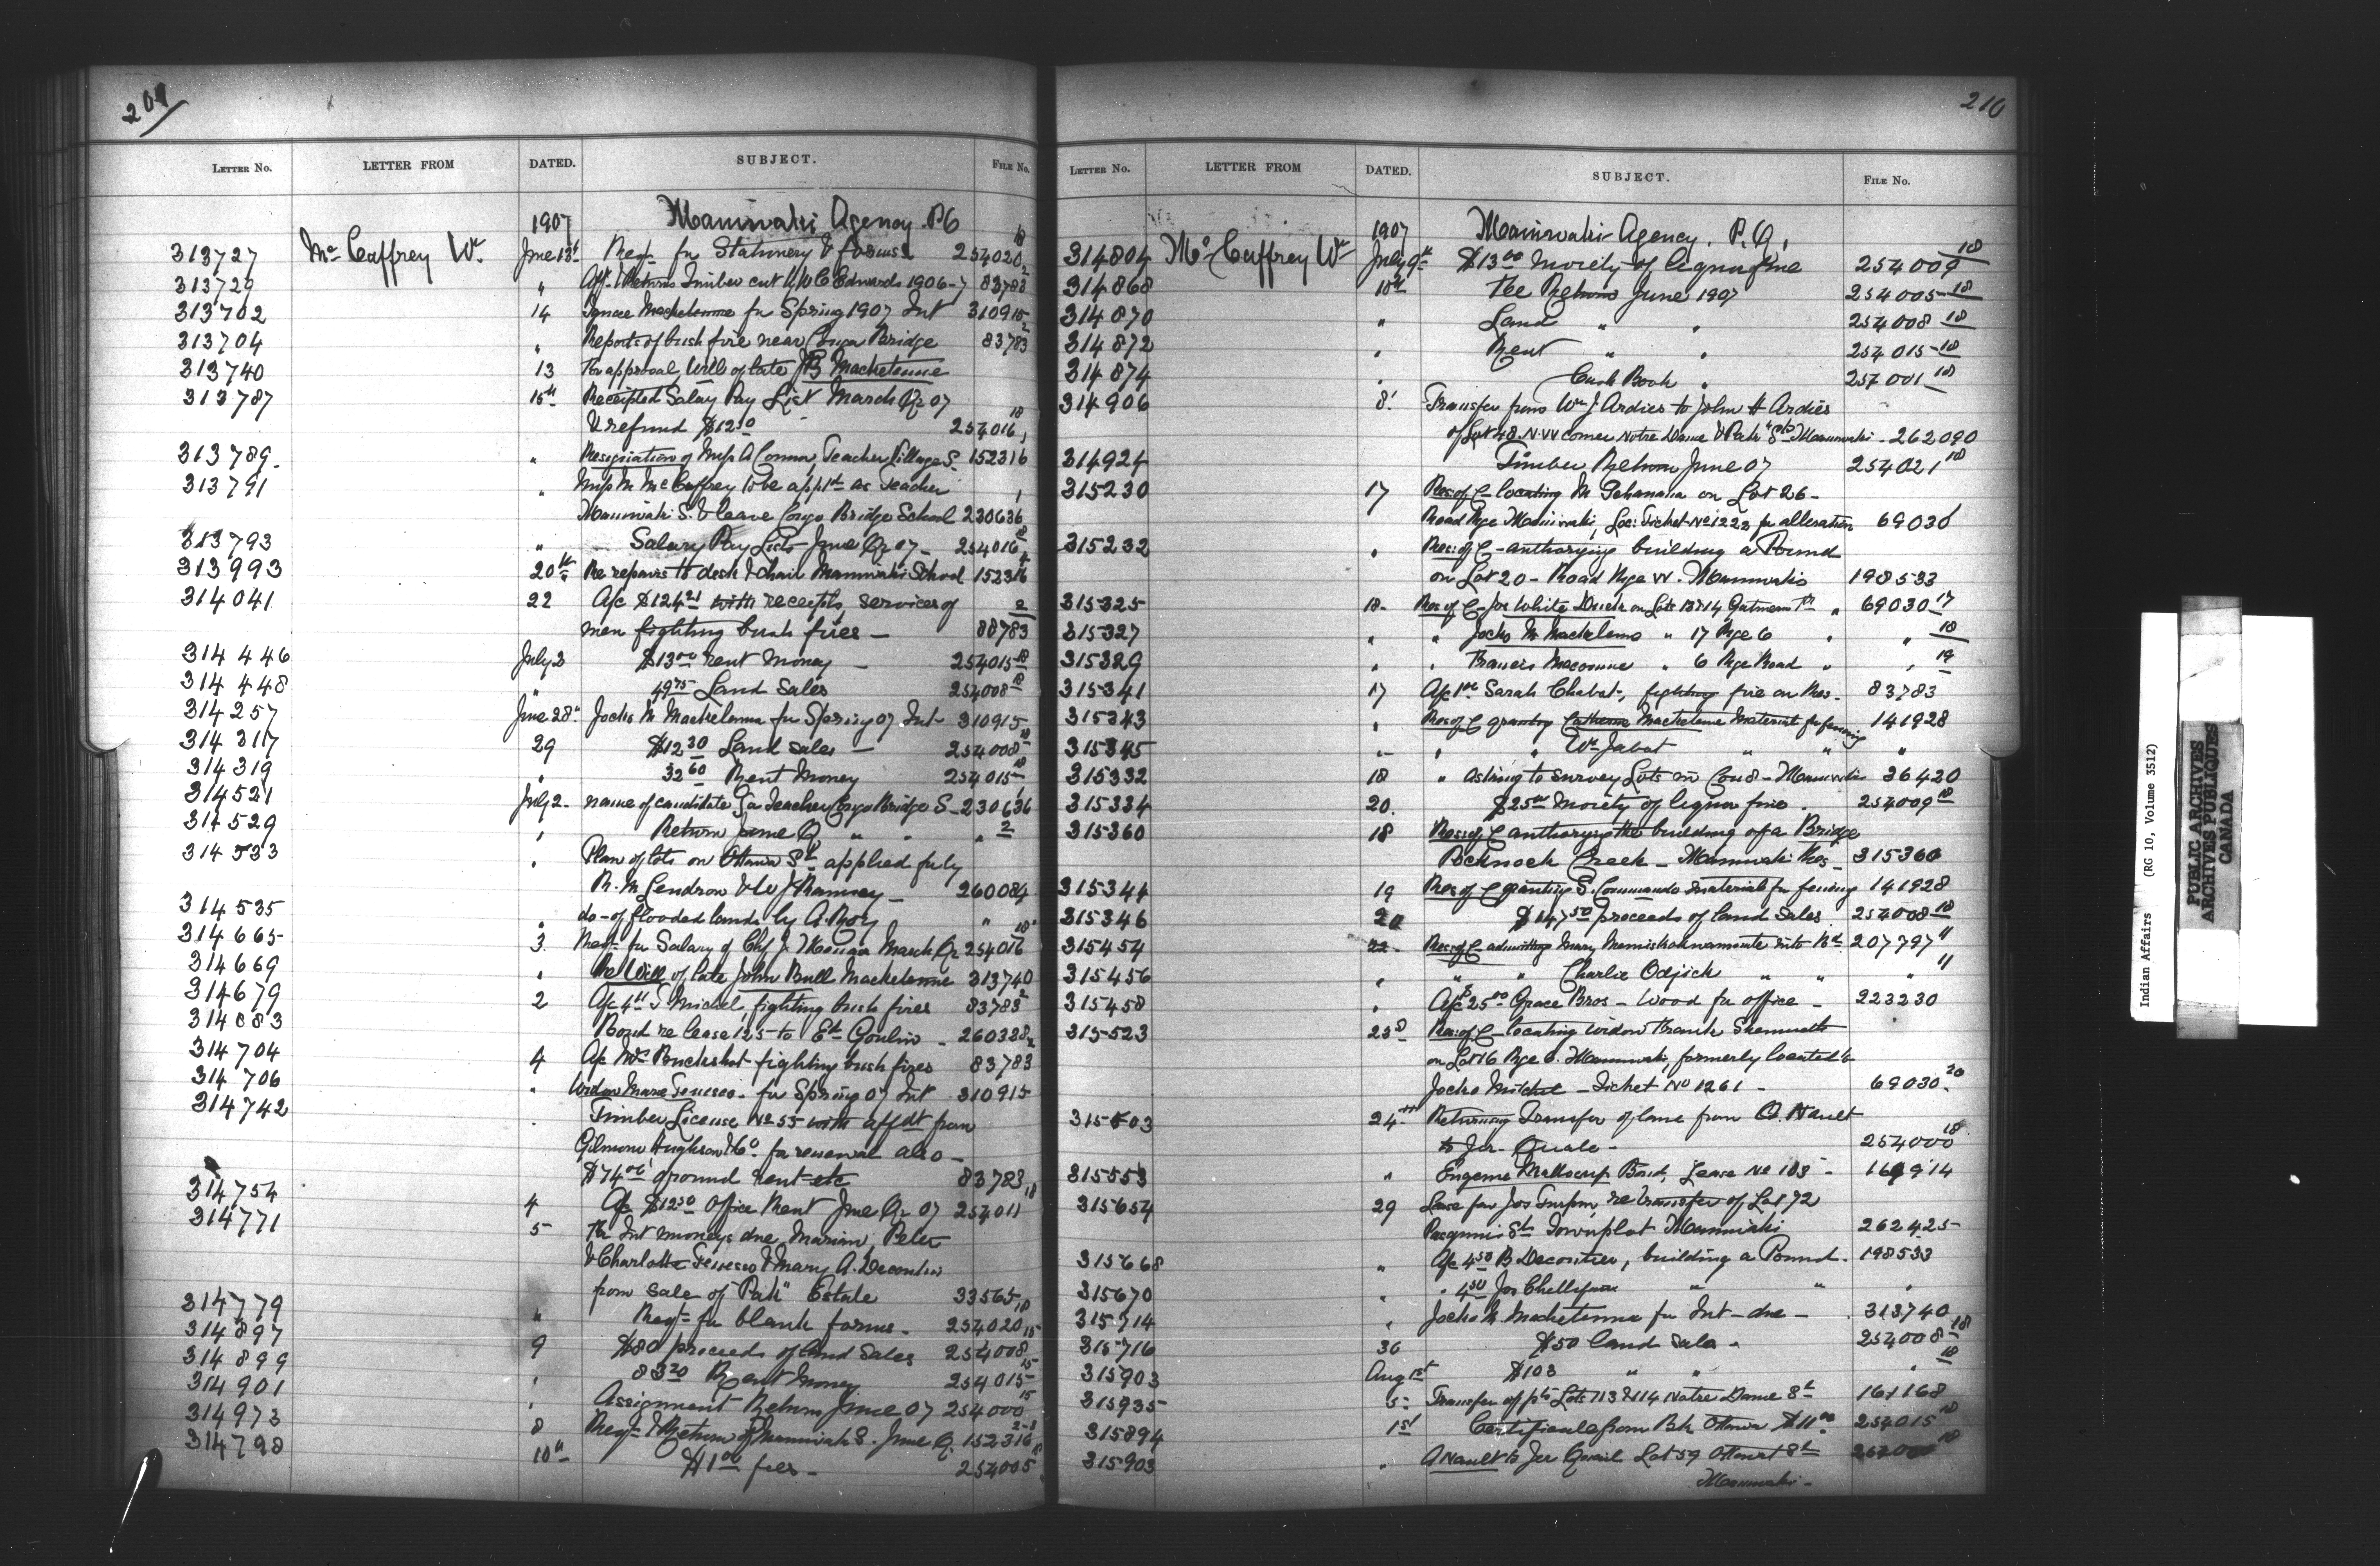 209
LETTER NO. LETTER FROM DATED. SUBJECT. FILE No.
1907 Maniwaki Agency. P.Q
313727 Mc Caffrey Wm. June 13th Reqn for Stationery & forms 254020 18
313729 " Afft & Returns Timber cut by W C Edwards 1906-7 83783 2
313702 14 Ignace for Spring 1907 Int 310915
313704 " Reports of bush fire near Congo Bridge 83783 2
313740 13 For approval, Will of late J B Machetenne
313787 15th Receipted Salary Pay List March Qr 07
& refund $12.50 254016 18
313789. " Resignation of Miss A Connor, Teacher Village S. 152316 1
313791 " Miss M. McCaffrey to be appt as Teacher
Maniwaki S. & leave Congo Bridge School 230636 1
313793 " Salary Pay Lists June Qr 07 - 254016 18
313993 20th Re repairs to desk & chair Maniwaki School 152316
314041 22 A/c $124.21 with receipts, services of
men fighting bush fires - 88783 2
314446 July 3 $13.00 rent money - 254015 18
314448 " 49.75 Land Sales 254008 18
314257 June 28th Jocko M. Machetenne for Spring 07 Int- 310915
314317 29 $12.30 Land sales - 254008 18
314319 " 32.60 Rent Money 254015 18
314521 July 2- name of candidate for Teacher Congo Bridge S- 230636 1
314529 " Return June Q " " " 2
314533 " Plan of lots on Ottawa St. applied for by
R. M Gendron & W J Ramsey - 260084
314535 " do- of flooded lands by A. Roy "
314665 3. Reqn for Salary of Chf J. March Qr 254016 18
314669 " Re Will of late John Bull Machetenne 313740
314679 2 A/c 4.00 T Michel, fighting bush fires 83783 2
314683 Bond re lease 125 to Goulin - 260338
314704 4 A/c Wm Buckshot fighting bush fires 83783 2
314706 " Widow Marie Tenesco- for Spring 07 Int 310915
314742 " Timber License No 55 with affdt from
Gilmour Hughson & Co. for renewal also -
$74.00 ground rent etc 83783
314754 4 A/c $12.50 Office Rent June Qr 07 254011 18
314771 5 For Int moneys due Marian, Peter
& Charlotte Tenesco & Mary A. Decontie
from sale of "Pah" Estate 33565
314779 " Reqn for blank forms - 254020 18
314897 9 $80 proceeds of land sales 254008 15
314899 " 83.20 Rent Money 254015 15
314901 " Assignment Return June 07 254000 15
314973 8 Reqn & Return of Maniwaki S. June Q. 152316 2-1
314798 10th $1.00 fees - 254005 18
210
LETTER NO. LETTER FROM DATED. SUBJECT. FILE No.
1907 Maniwaki Agency. P.Q.
314804 Mc Caffrey Wm July 9th $13.00 Moiety of liquor fine 254009 18
314868 10th Fee Return June 1907 254005 18
314870 " Land " " 254008 18
314872 " Rent " " 254015 18
314874 " Cash Book " 254001 18
314906 8. Transfer from Wm J. Ardies to John H Ardies
of Lot 48. N.W corner Notre Dame & Park Sts Maniwaki - 262090
314924 Timber Return June 07 254021 18
315230 17 Res: of C- locating M Tchanaka on Lot 26 -
Road Rge Maniwaki, Loc: Ticket No 1223 for alteration 69030
315232 " Res: of C- authorizing building a Pound
on Lot 20 - Road Rge W. Maniwaki 198533
315325 18- Res of C- Jos White on Lots 13 & 14 " 69030 17
315327 " " Jocko M. Machelemo " 17 Rge 6 " " 18
315329 " " Francis Macomme " 6 Rge Road " " 19
315341 17 A/c 1.00 Sarah Chabot-, fighting fire on Res- 83783
315343 " Res of C granting Catherine Machetenne Material for fencing 141928
315345 " " " Wm Jabot " " "
315332 18 " Asking to survey Lots in Con 8 - Maniwaki 36420
315334 20. $25.00 Moiety of liquor fine - 254009 18
315360 18 Res: of C authorizing the building of a Bridge
Creek - Maniwaki Res- 315360
315344 19 Res of C granting S. Commando material for fencing 141928
315346 20 $147.50 proceeds of land sales. 254008 18
315454 22 Res: of C- admitting Mary into Bd 207797 11
315456 " " " Charlie Odjick " " " 11
315458 " A/c $25.00 Grace Bros - Wood for office - 223230
315523 23d Res: of C- locating widow Frank
on Lot 16 Rge 6. Maniwaki, formerly located to
Jocko Mitchel - Ticket No 1261 - 69030 20
315603 24th Returning Transfer of lane from O. Nault
to Jer- Quale - 254000 18
315553 " Eugene Bond, Lease No 103 - 16 914
315654 29 Lease for Jos Turpin, re transfer of Lot 72
St. Townplot Maniwaki 262425
315668 " A/c 4.50 B Decontie, building a Pound- 198533
315670 " " 4.50 Jos " " "
315714 " Jocko M. Machetenne for Int- due - 313740
315716 30 $50 land sale - 254008 18
315903 Aug 1st $103 " " " 18
315935 5- Transfer of pts Lots 113 & 114 Notre Dame St 161168
315894 1st Certificate from Bk Ottawa $11.00 254015 18
315903 " A Nault to Jer Quail Lot 59 Ottawa St
Maniwaki -
Indian Affairs (RG 10, Volume 3512)
PUBLIC ARCHIVES
ARCHIVES PUBLIQUES
CANADA